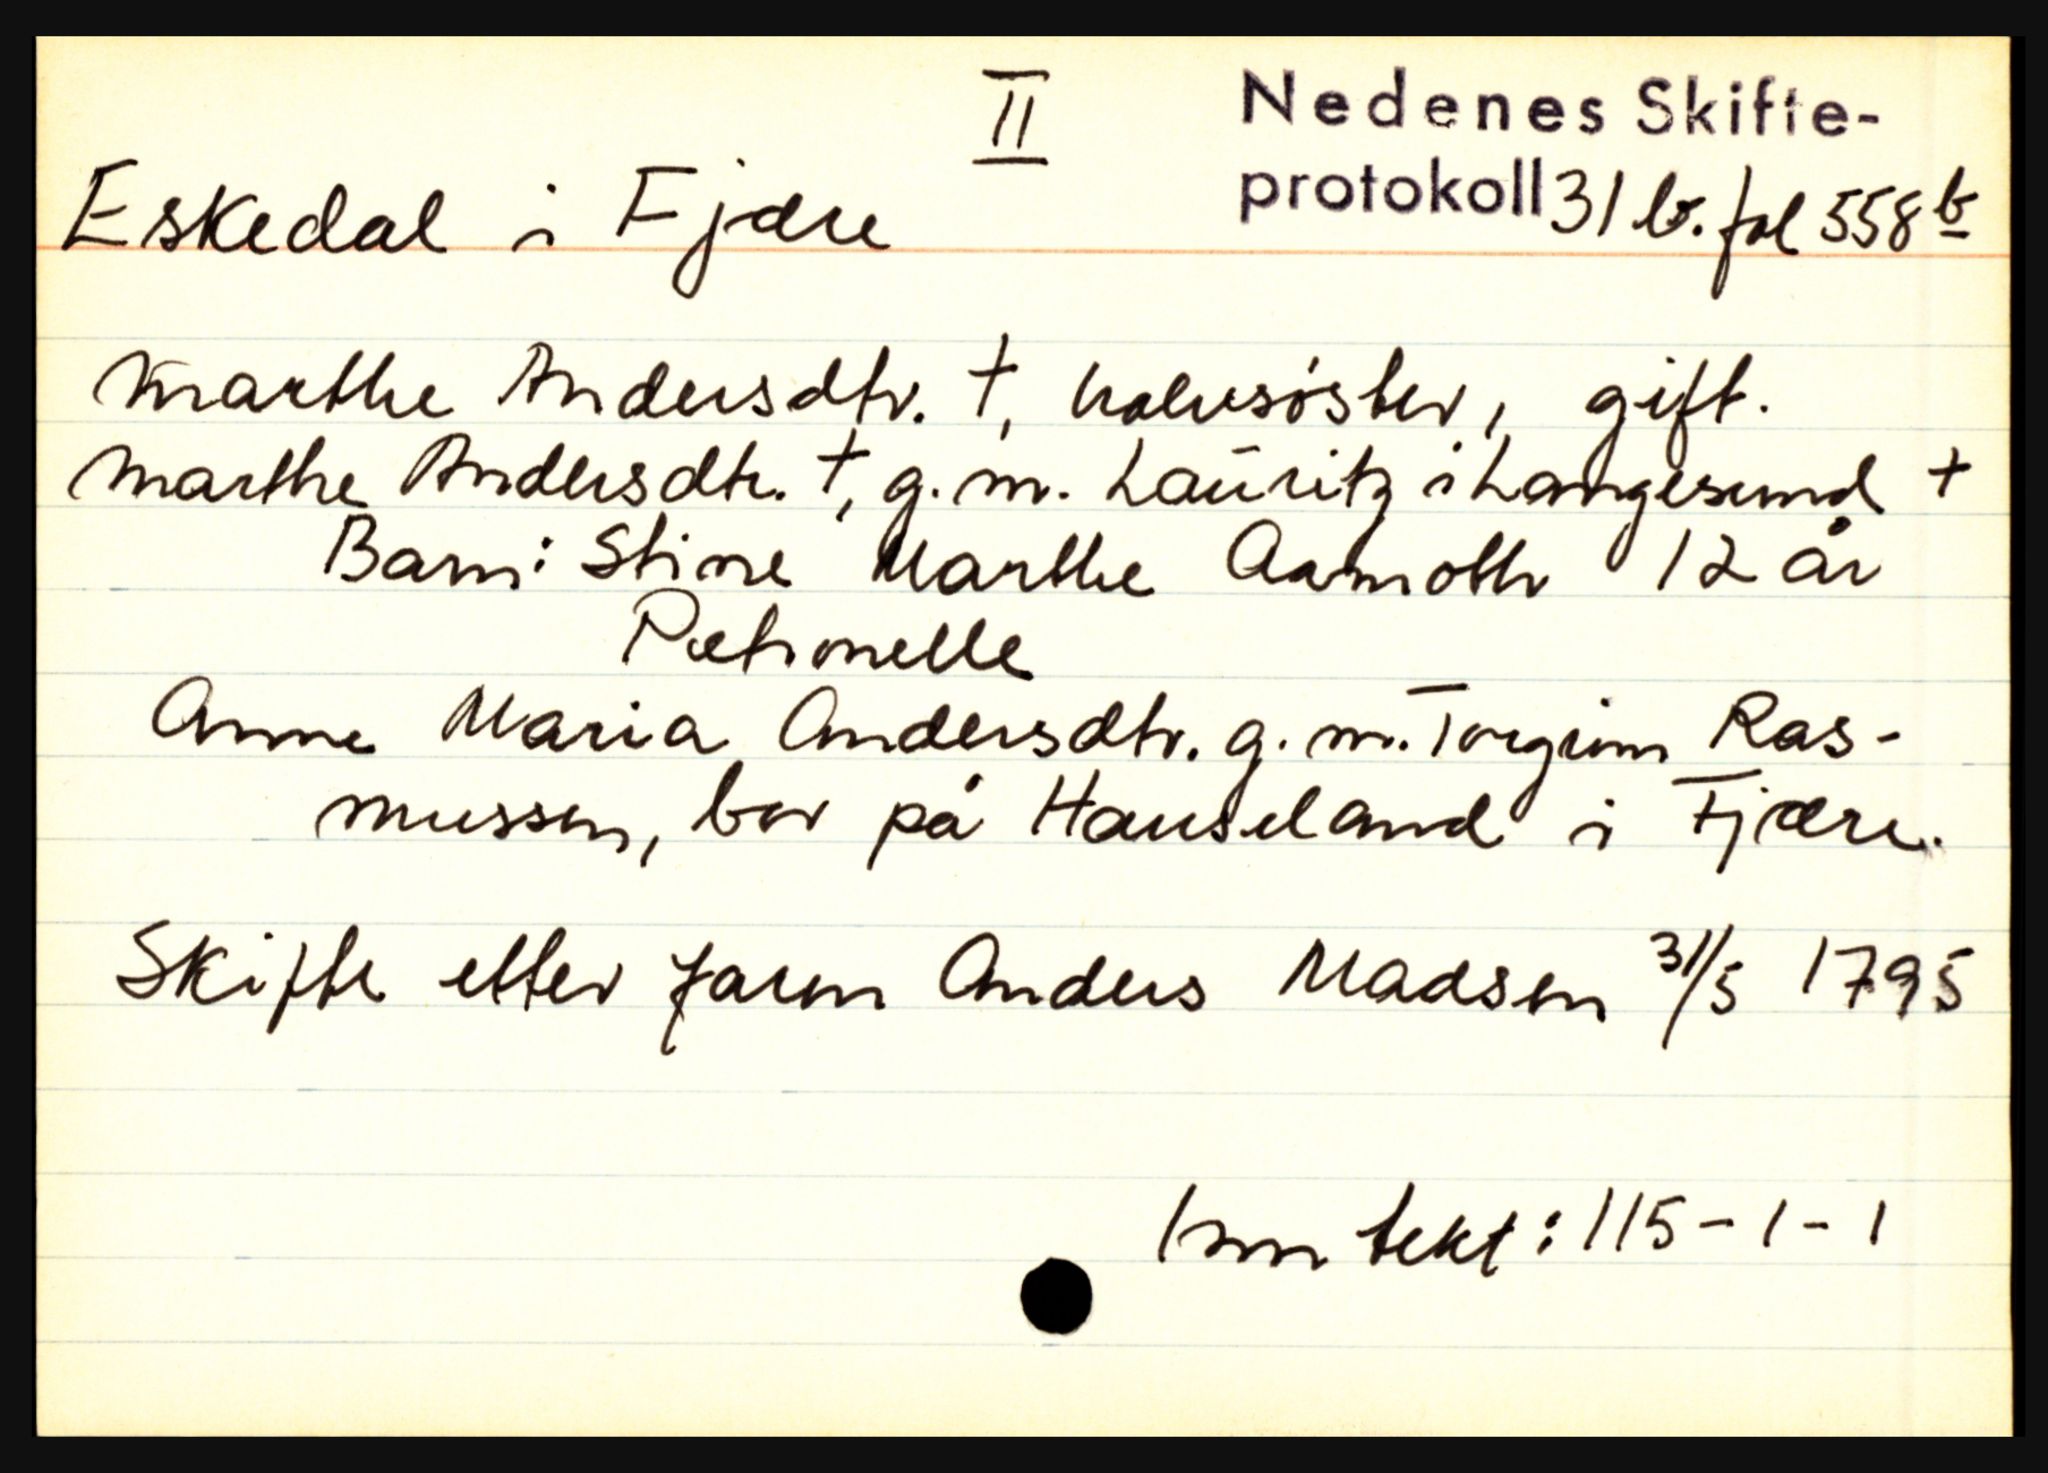 II
Nedenes Skifte-
protokoll 31 b. fol 558 b
Eskedal i Fjære
Marthe Andersdtr. †, halvsøster, gift.
Marthe Andersdtr. †, g. m. Lauritz i Langesund †
Barn: Stine Marthe Aamoth 12 år
Petronelle
Anne Maria Andersdtr. g. m. Torgrim Ras-
mussen, bor på Hauseland i Fjære.
Skifte etter faren Anders Madsen 31/5 1795
Inntekt: 115-1-1